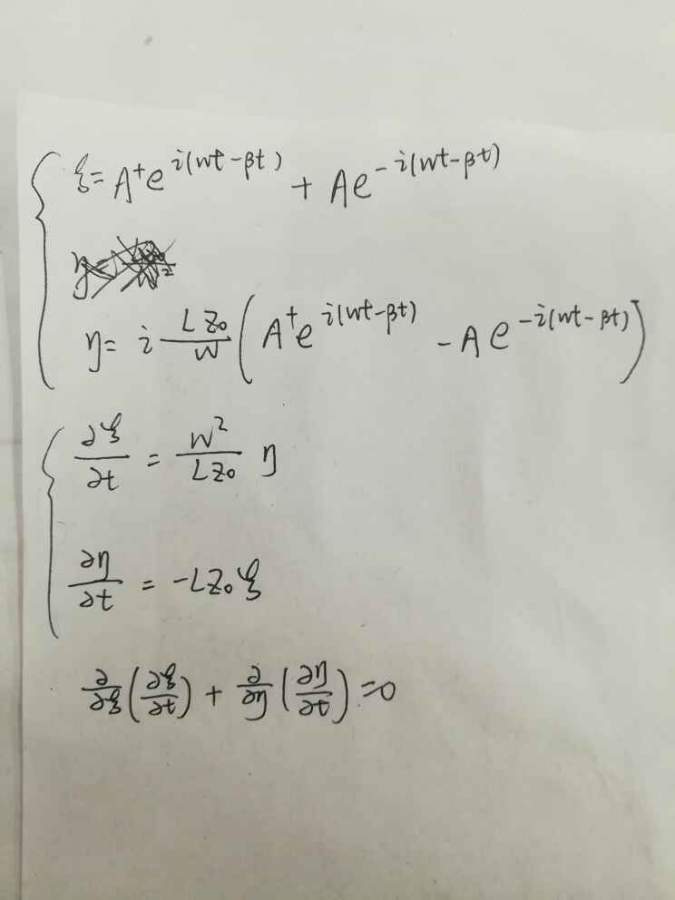 ξ = A⁺e^{i(wt-βt)} + Ae^{-i(wt-βt)}
η = i \frac{LZ₀}{W} (A⁺e^{i(wt-βt)} - Ae^{-i(wt-βt)})
\frac{∂ξ}{∂t} = \frac{W²}{LZ₀} η
\frac{∂η}{∂t} = -LZ₀ξ
\frac{∂}{∂ξ}(\frac{∂ξ}{∂t}) + \frac{∂}{∂η}(\frac{∂η}{∂t}) = 0